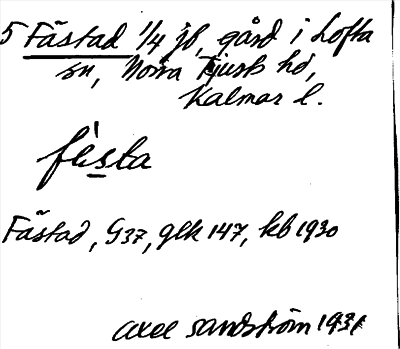 5 Fästad 1/4 jb, gård i Lofta
sn, Norra Tjusts hd,
Kalmar l.
fès̲ta
Fästad, G37, glk 147, kb 1930
Axel Sandström 1931